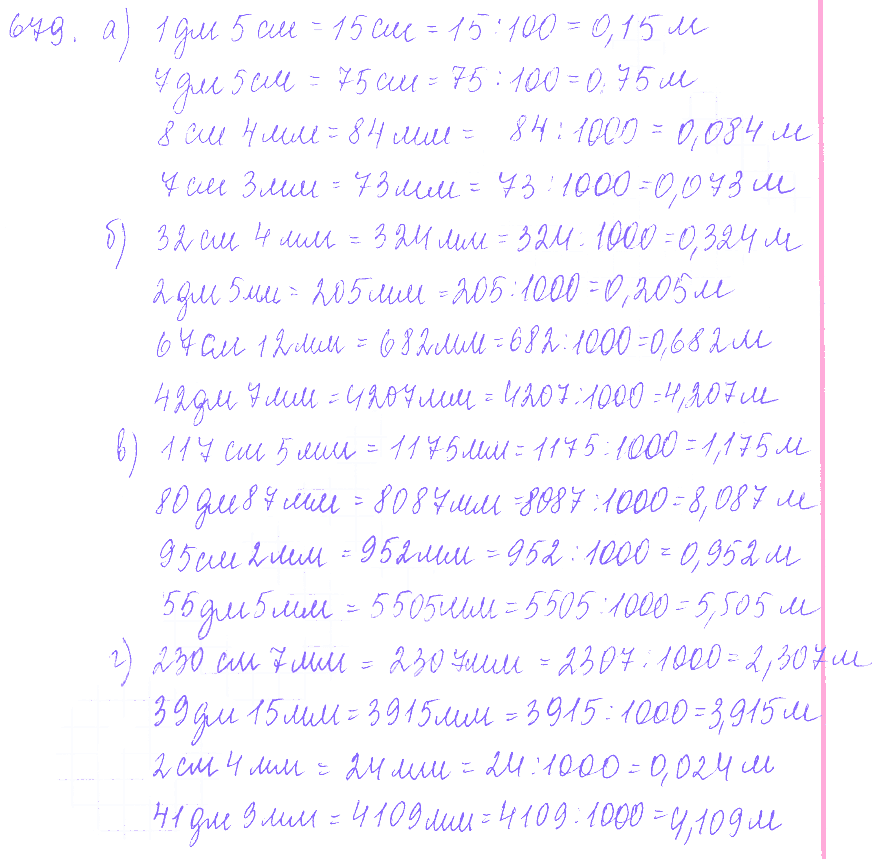 679. а) 1 дм 5 см = 15 см = 15 : 100 = 0,15 м
7 дм 5 см = 75 см = 75 : 100 = 0,75 м
8 см 4 мм = 84 мм = 84 : 1000 = 0,084 м
7 см 3 мм = 73 мм = 73 : 1000 = 0,073 м
б) 32 см 4 мм = 324 мм = 324 : 1000 = 0,324 м
2 дм 5 мм = 205 мм = 205 : 1000 = 0,205 м
67 см 12 мм = 682 мм = 682 : 1000 = 0,682 м
42 дм 7 мм = 4207 мм = 4207 : 1000 = 4,207 м
в) 117 см 5 мм = 1175 мм = 1175 : 1000 = 1,175 м
80 дм 87 мм = 8087 мм = 8087 : 1000 = 8,087 м
95 см 2 мм = 952 мм = 952 : 1000 = 0,952 м
55 дм 5 мм = 5505 мм = 5505 : 1000 = 5,505 м
г) 230 см 7 мм = 2307 мм = 2307 : 1000 = 2,307 м
39 дм 15 мм = 3915 мм = 3915 : 1000 = 3,915 м
2 см 4 мм = 24 мм = 24 : 1000 = 0,024 м
41 дм 9 мм = 4109 мм = 4109 : 1000 = 4,109 м